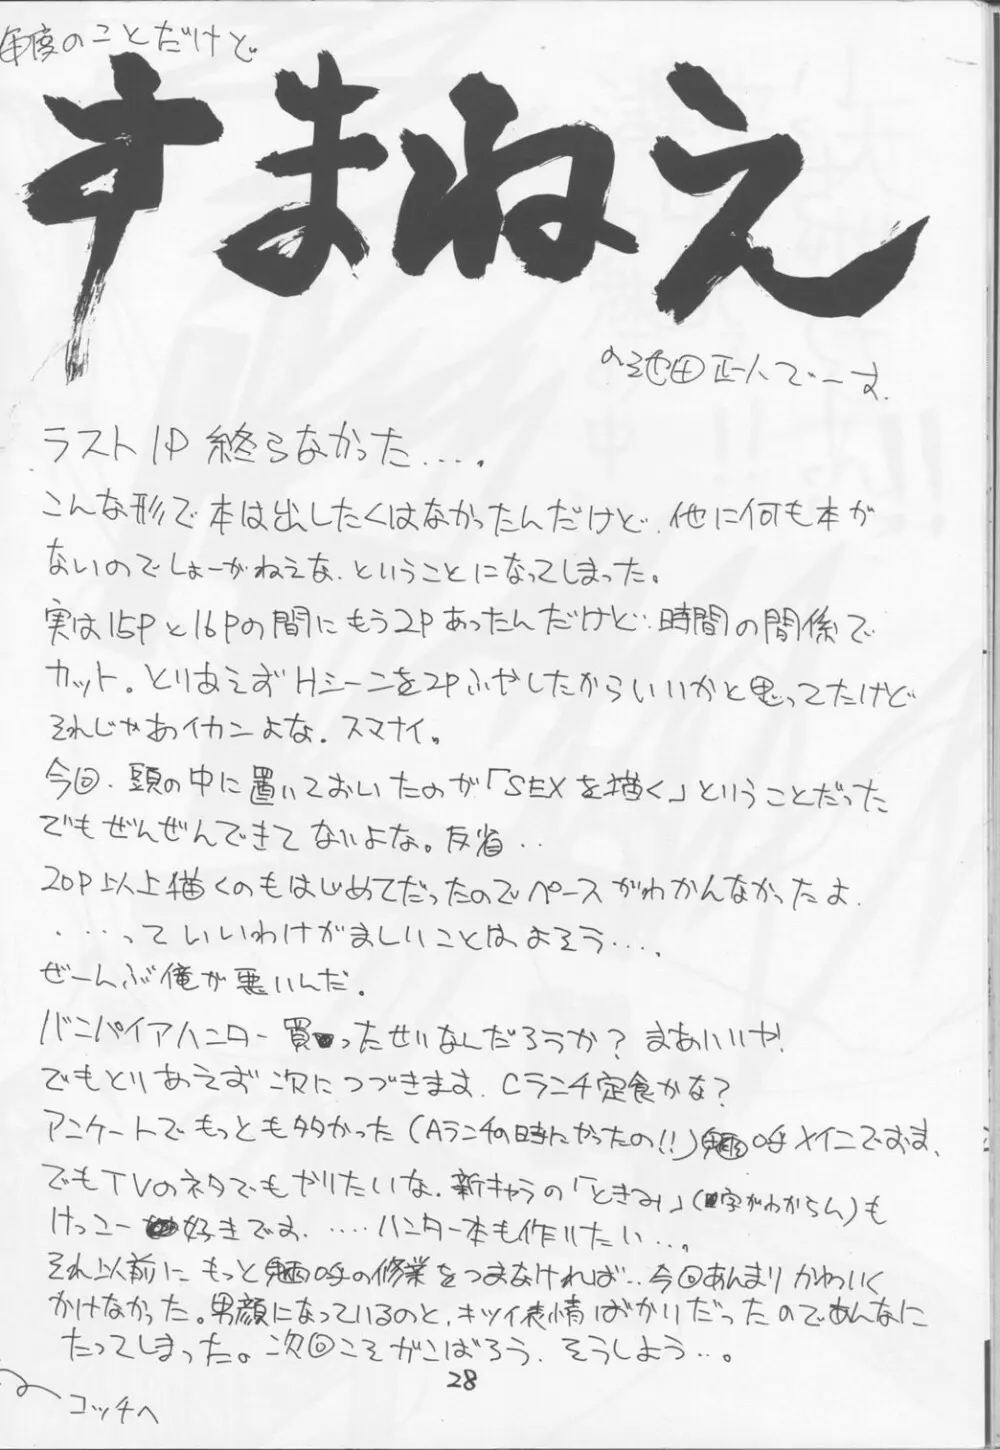 年度のことだけど
すまねえ
の池田正人でーす.
ラスト1P 終らなかった....
こんな形で本は出したくはなかったんだけど、他に何も本が
ないのでしょーがねえな、ということになってしまった。
実は15Pと16Pの間にもう2Pあったんだけど、時間の関係で
カット。とりあえずHシーンを2Pふやしたからいいかと思ってたけど
それじゃあイカンよな. スマナイ。
今回、頭の中に置いておいたのが「SEXを描く」ということだった
でもぜんぜんできてないよな。反省..
20P以上描くのもはじめてだったのでペースがわかんなかったよ.
....っていいわけがましいことはよそう....
ぜーんぶ俺が悪いんだ.
バンパイアハンター買ったせいなんだろうか? まあいいや!
でもとりあえず次につづきます. Cランチ定食かな?
アンケートでもっとも多かった(Aランチの時にやったの!!)魎呼メインでおます.
でもTVのネタでもやりたいな. 新キャラの「ときみ」(字がわからん)も
けっこー好きです. ....ハンター本も作りたい...
それ以前にもっと魎呼の修業をつまなければ.. 今回あんまりかわいく
かけなかった。男顔になっているのと、キツイ表情ばかりだったのであんなに
たってしまった。次回こそがんばろう、そうしよう..。
28
コッチへ